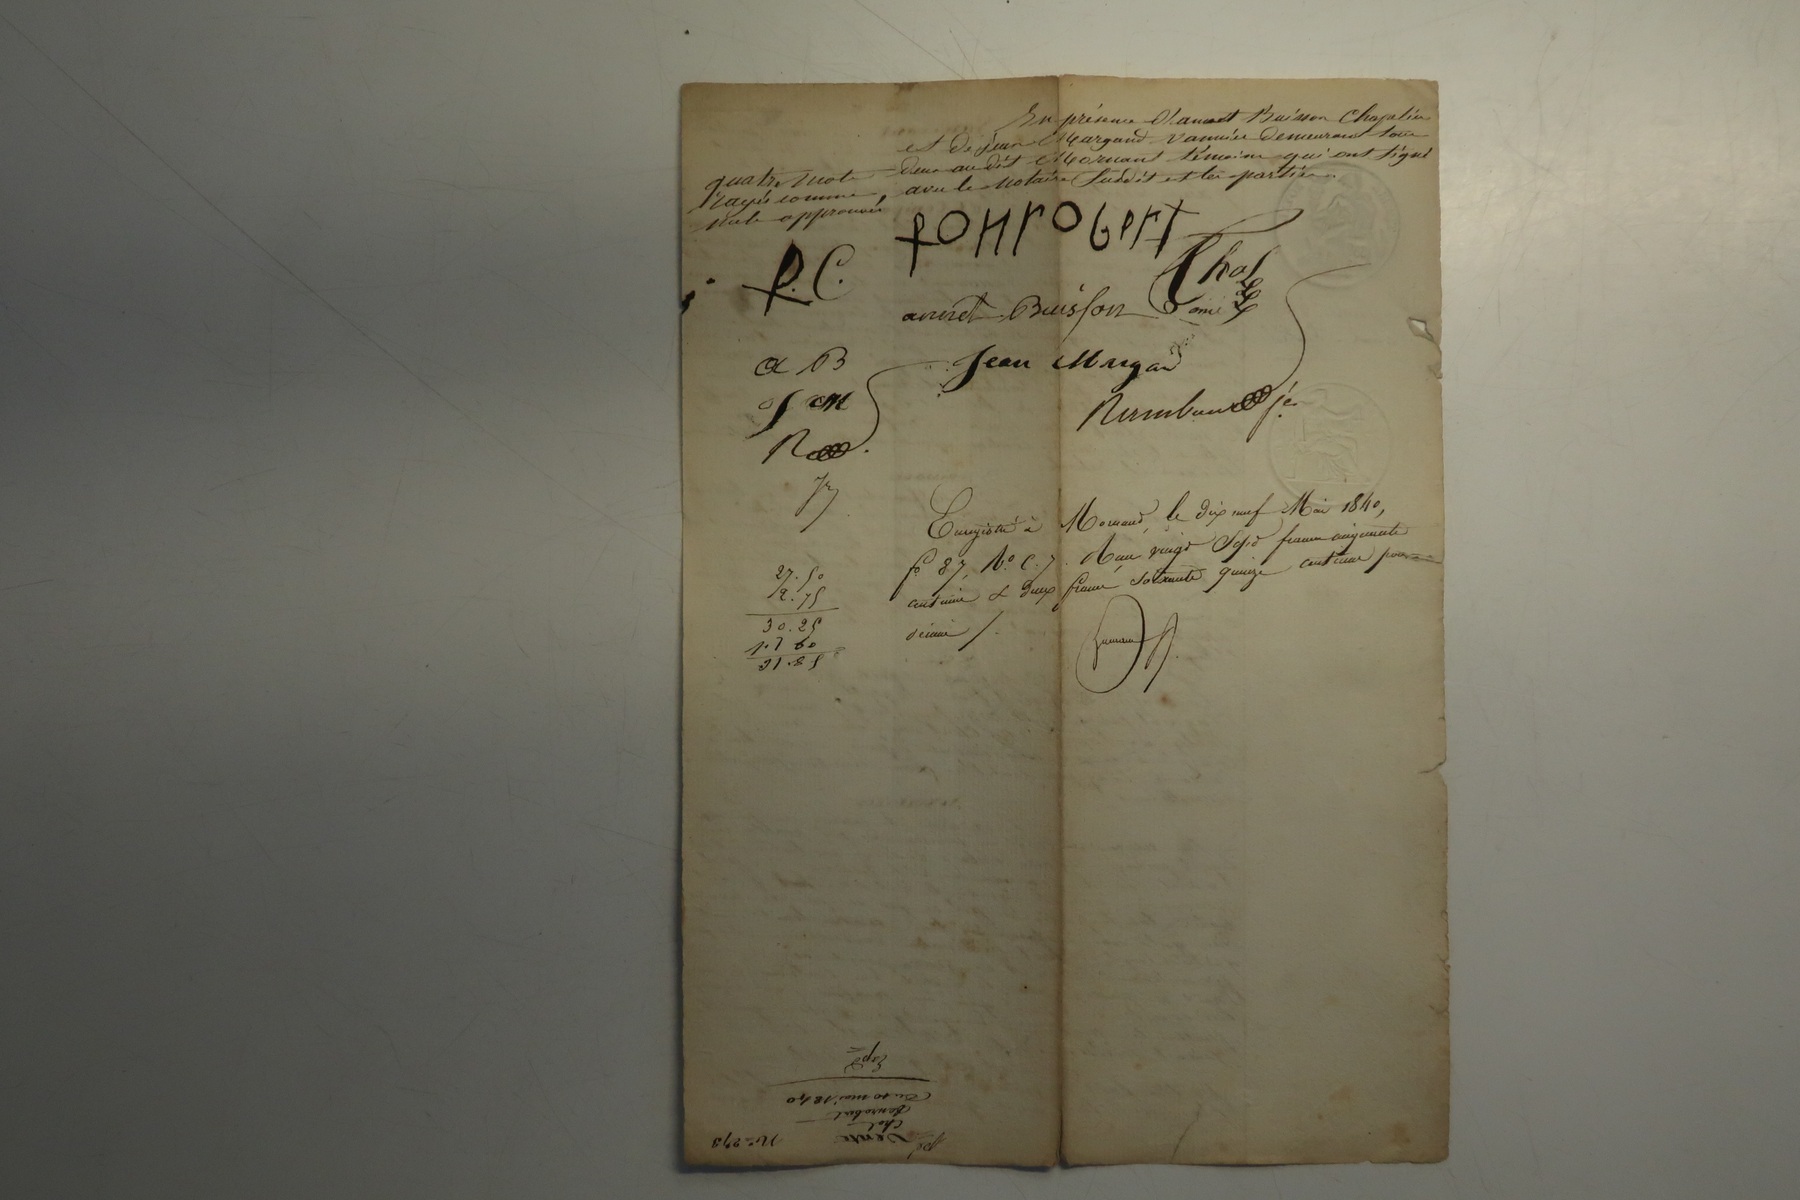 En présence d'annet Buisson Chapelier
et de Jean Margand Vannier demeurant tous
deux au dit Mornant témoins qui ont signé
avec le Notaire susdit et les parties.
quatre mots
rayés comme
nuls approuvés
fonrobert
P.C.
Chol
annet Buisson
a B
Jean Margan
J M
R
Enregistré à Mornant, le dix neuf Mai 1840,
fo 87, No C. 7. Reçu vingt sept francs cinquante
centimes & deux francs soixante quinze centimes pour
décime
27.50
2.75
30.25
Expé
du 10 mai 1840
fonrobert
Chol
Vente